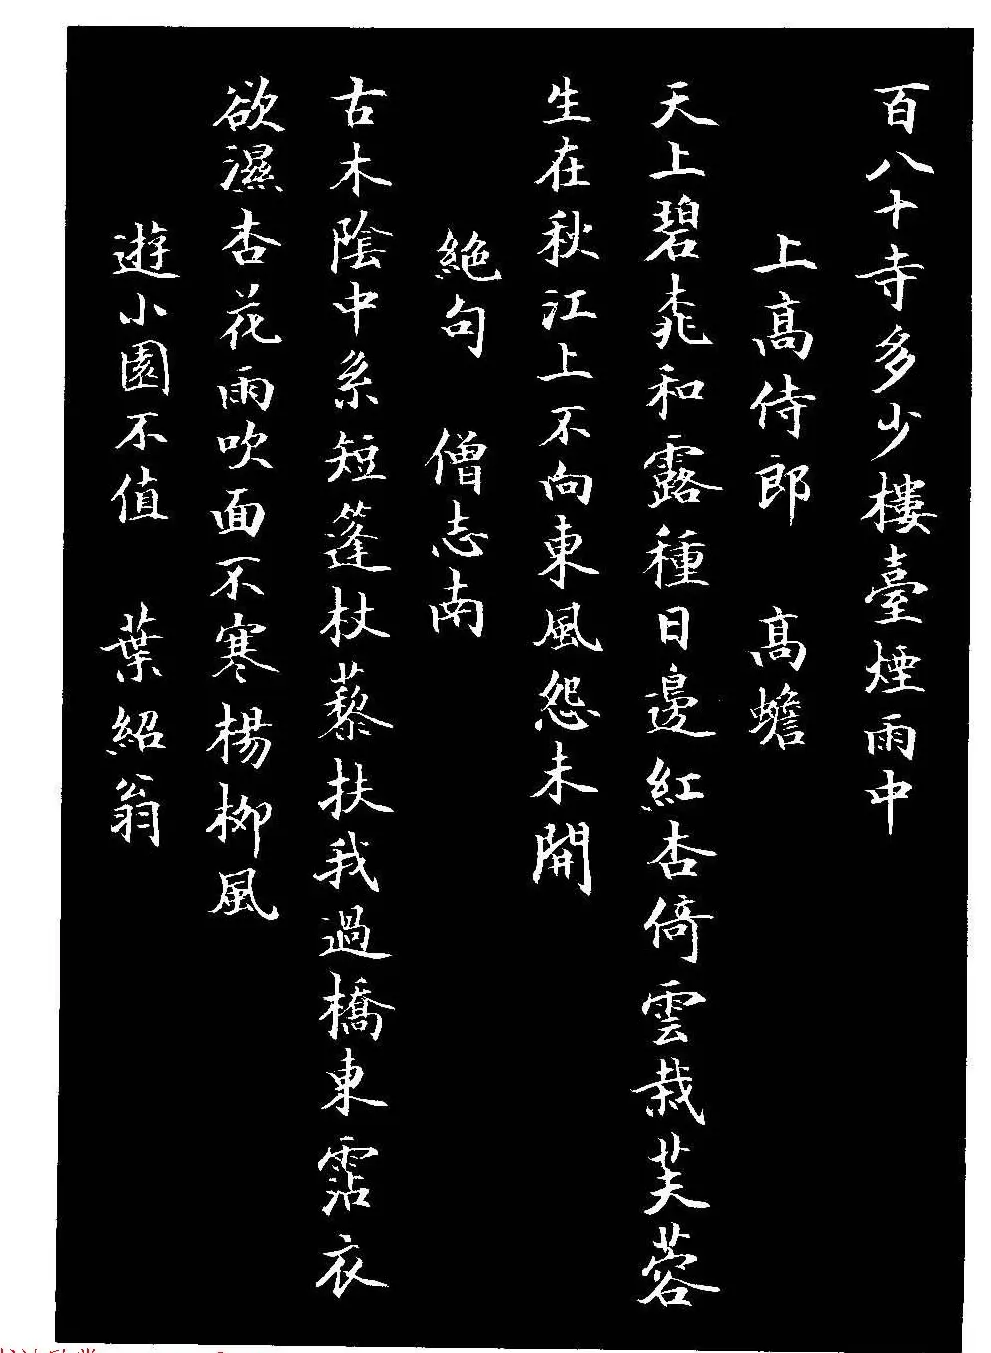 百八十寺多少樓臺煙雨中
上高侍郎 高蟾
天上碧桃和露種日邊紅杏倚雲栽芙蓉
生在秋江上不向東風怨未開
絕句 僧志南
古木陰中系短篷杖藜扶我過橋東霑衣
欲濕杏花雨吹面不寒楊柳風
遊小園不值 葉紹翁